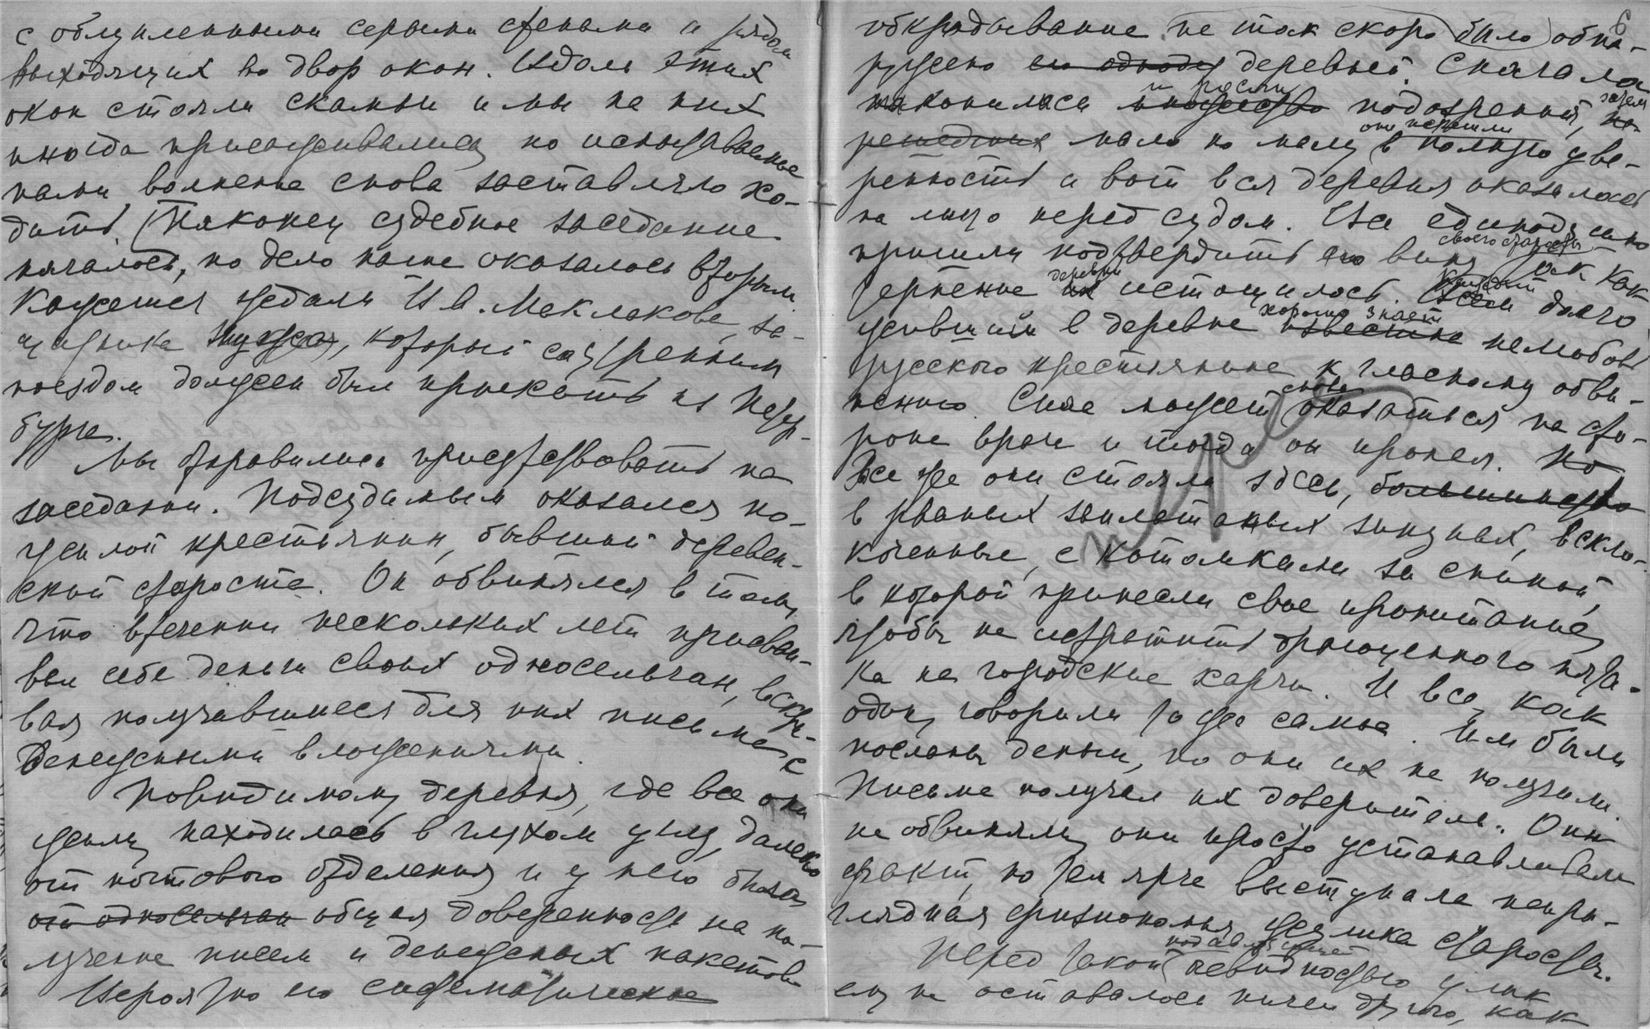 с облупленными серыми стенами и рядом
выходящих во двор окон. Вдоль этих
окон стояли скамьи и мы на них
иногда присаживались, но испытываемое
нами волненье снова заставляло хо-
дить. Наконец судебное заседание
началось, но дело наше оказалось вторым.
Кажется ждали И А. Маклакова, за-
щитника, который с утренним
поездом должен был приехать из Петер-
бурга.
Мы отправились присутствовать на
заседании. Подсудимым оказался по-
жилой крестьянин, бывший деревен-
ской староста. Он обвинялся в том,
что втечении нескольких лет присваи-
вал себе деньги своих односельчан, вскры-
вая получавшиеся для них письма с
денежными вложениями.
Повидимому деревня, где все они
жили, находилась в глухом углу, далеко
от почтового отделения и у него была
от односельчан общая доверенность на по-
лучение писем и денежных пакетов.
Вероятно его систематическое
6
обкрадывание не так скоро было обна-
ружено деревней. Сначала
накопились и росли подозрения, затем
мало по малу они перешли в полную уве-
ренность и вот вся деревня оказалась
на лицо перед судом. Все единодушно
пришли подтвердить вину своего старосты так как
терпенье деревни истощилось. Каждый долго
живший в деревне хорошо знает нелюбовь
русского крестьянина к гласному обви-
нению. Сила может снова оказаться на сто-
роне врага и тогда он пропал. Но
все же они стояли здесь, большинство
в рваных заплатаных зипунах, всклo-
коченные, с котомками за спиной,
в которой принесли свое пропитание,
чтобы не истратить драгоценного пята-
ка на городские харчи. И все, как
один, говорили то же самое. Им были
посланы деньги, но они их не получили.
Письма получал их доверитель. Они
не обвиняли, они просто устанавливали
факт, но тем ярче выступала непри-
глядная физиономия жулика старосты.
Перед такой подавляющей очевидностью улик
ему не оставалось ничего другого, как